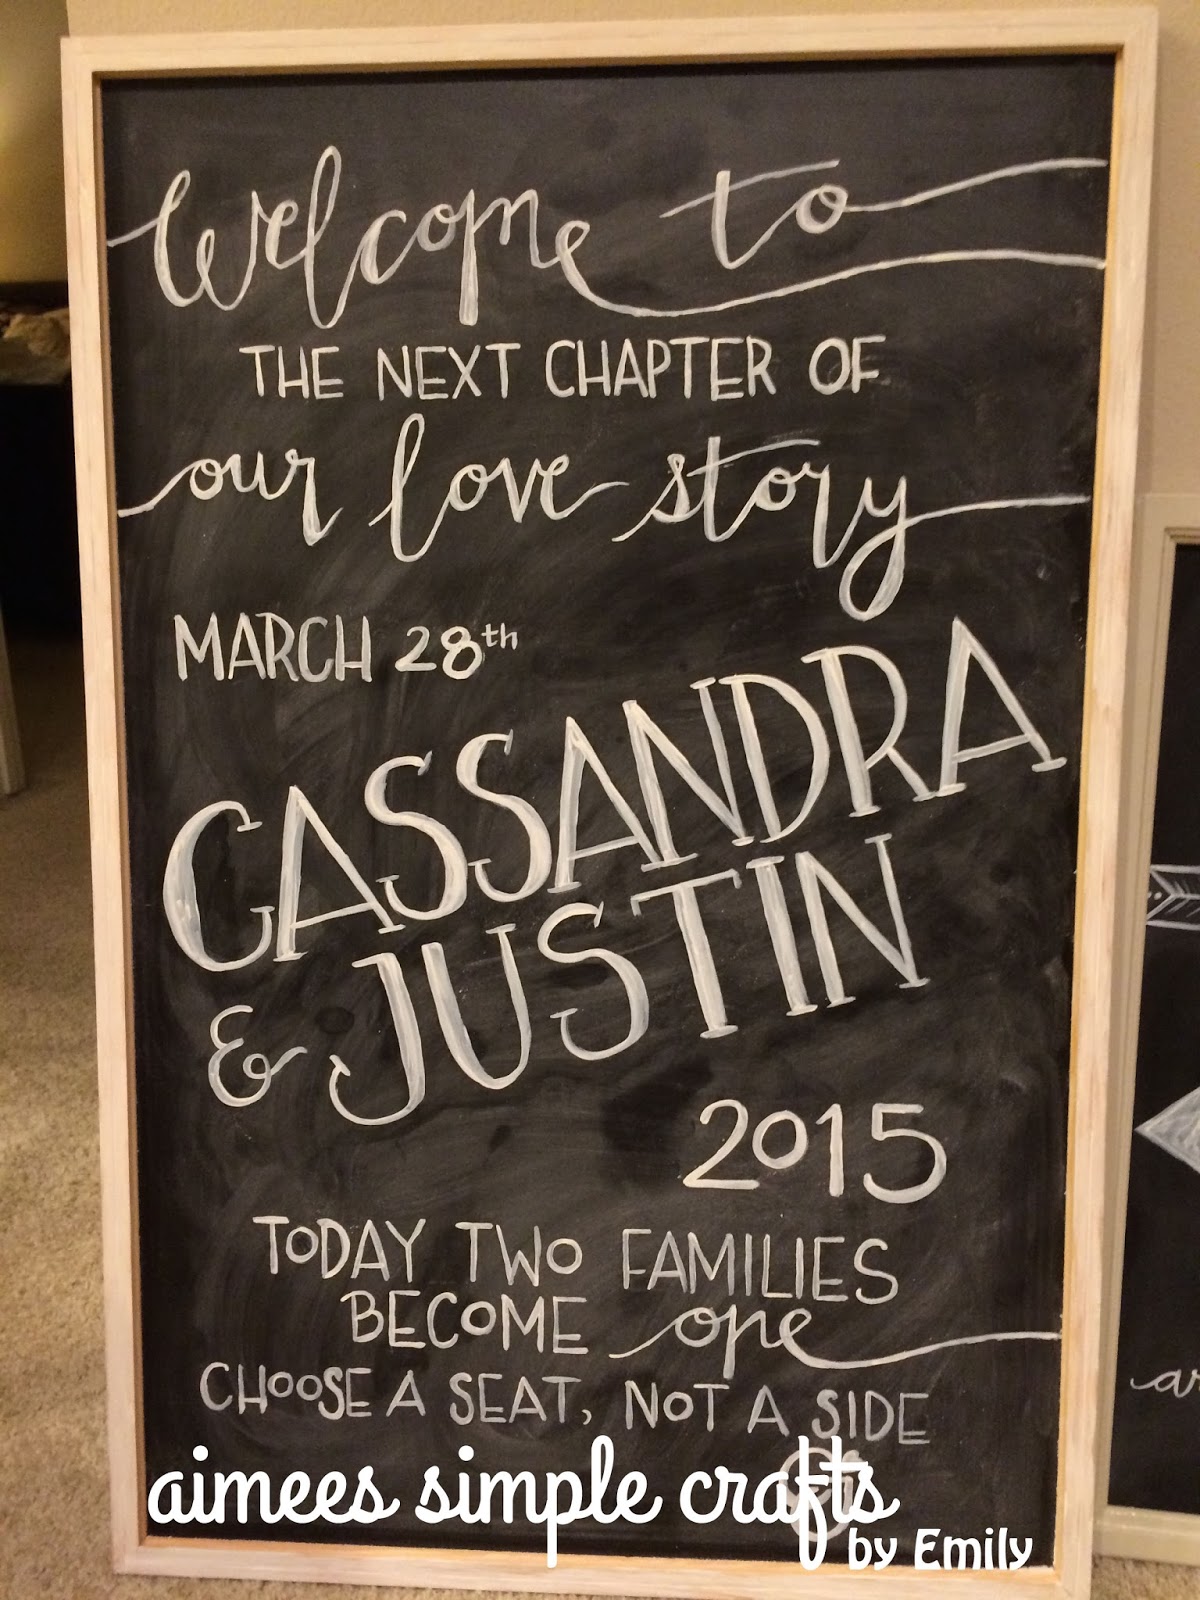 Welcome to
THE NEXT CHAPTER OF
our love story
MARCH 28th
CASSANDRA
& JUSTIN
2015
TODAY TWO FAMILIES
BECOME one
CHOOSE A SEAT, NOT A SIDE
aimees simple crafts
by Emily